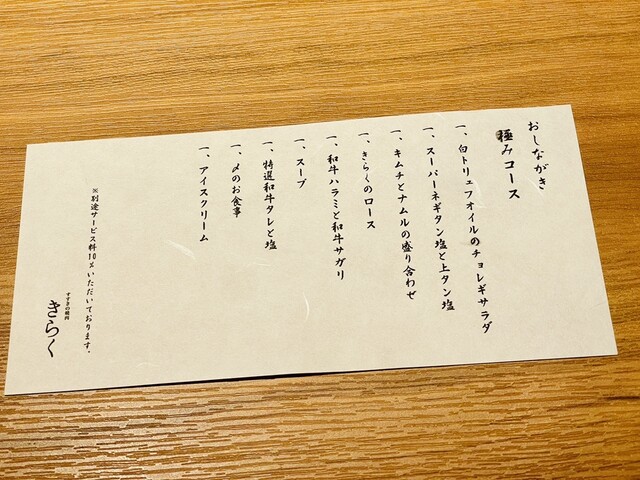 おしながき
極みコース
一、白トリュフオイルのチョレギサラダ
一、スーパーネギタン塩と上タン塩
一、キムチとナムルの盛り合わせ
一、きらくのロース
一、和牛ハラミと和牛サガリ
一、スープ
一、特選和牛タレと塩
一、〆のお食事
一、アイスクリーム
※別途サービス料10%いただいております。
すすきの焼肉
きらく